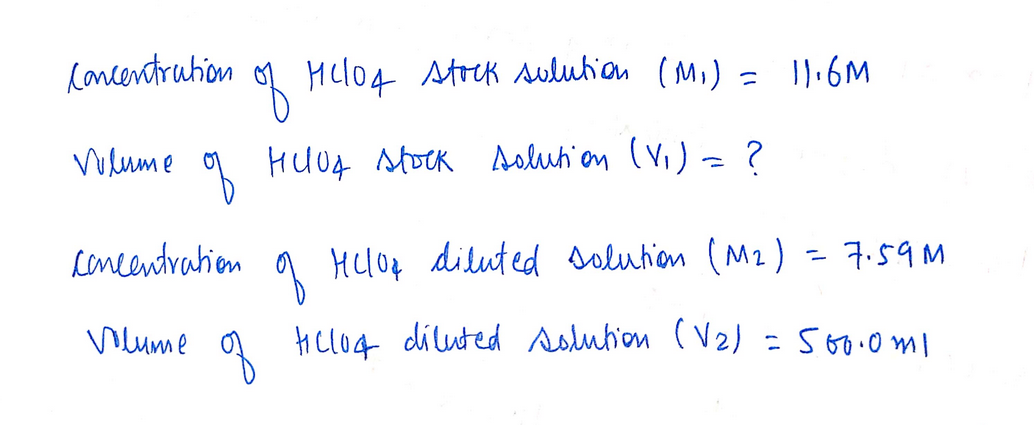 Concentration of HClO4 stock solution (M1) = 11.6M
Volume of HClO4 stock solution (V1) = ?
Concentration of HClO4 diluted solution (M2) = 7.59M
Volume of HClO4 diluted solution (V2) = 500.0ml